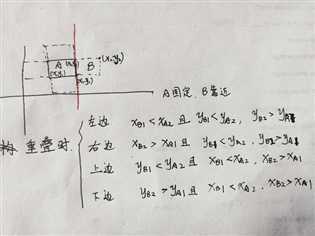 A (x₂,y₂) B (x₂,y₂)
(x₁,y₁)
A固定,B靠近
重叠时
左边 xB1 < xA2 且 yB1 < yA2, yB2 > yA1
右边 xB2 > xA1 且 yB1 < yA2, yB2 > yA1
上边 yB1 < yA2 且 xB1 < xA2, xB2 > xA1
下边 yB2 > yA1 且 xB1 < xA2, xB2 > xA1